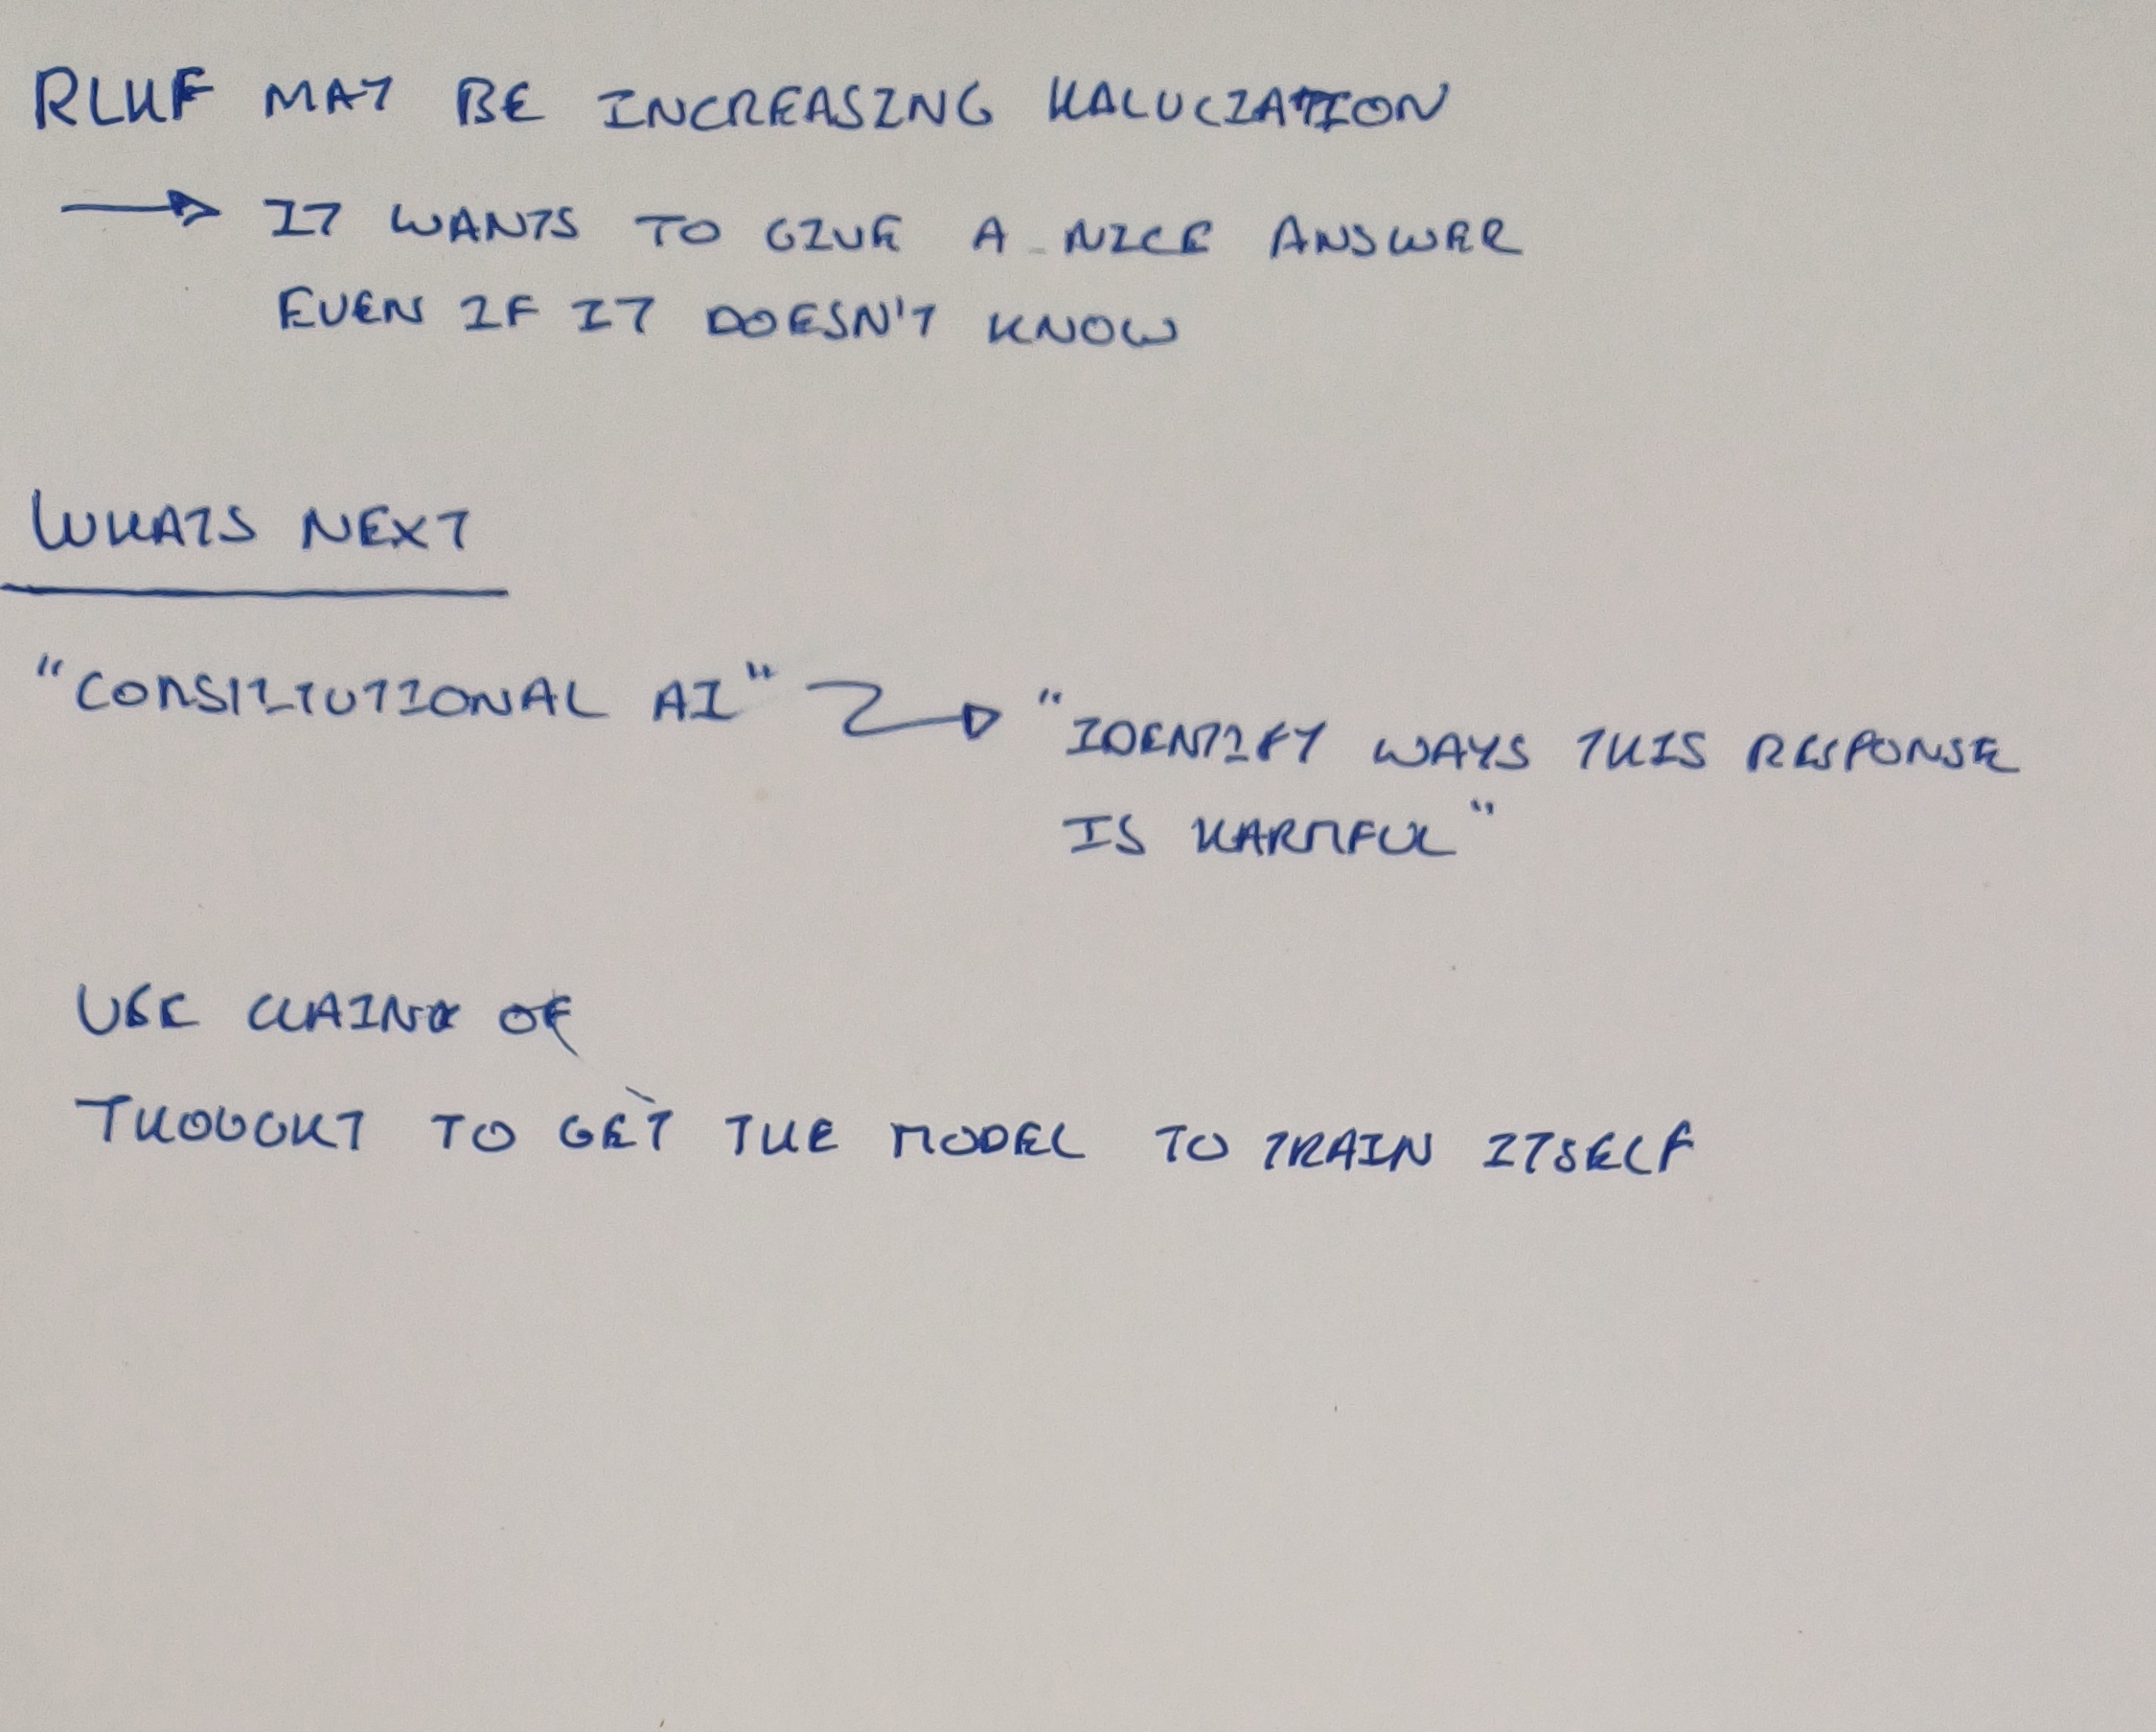 RLHF MAY BE INCREASING HALUCIATION
→ IT WANTS TO GIVE A NICE ANSWER
EVEN IF IT DOESN'T KNOW
WHATS NEXT
"CONSTITUTIONAL AI" → "IDENTIFY WAYS THIS RESPONSE
IS HARMFUL"
USE CHAIN OF
THOUGHT TO GET THE MODEL TO TRAIN ITSELF